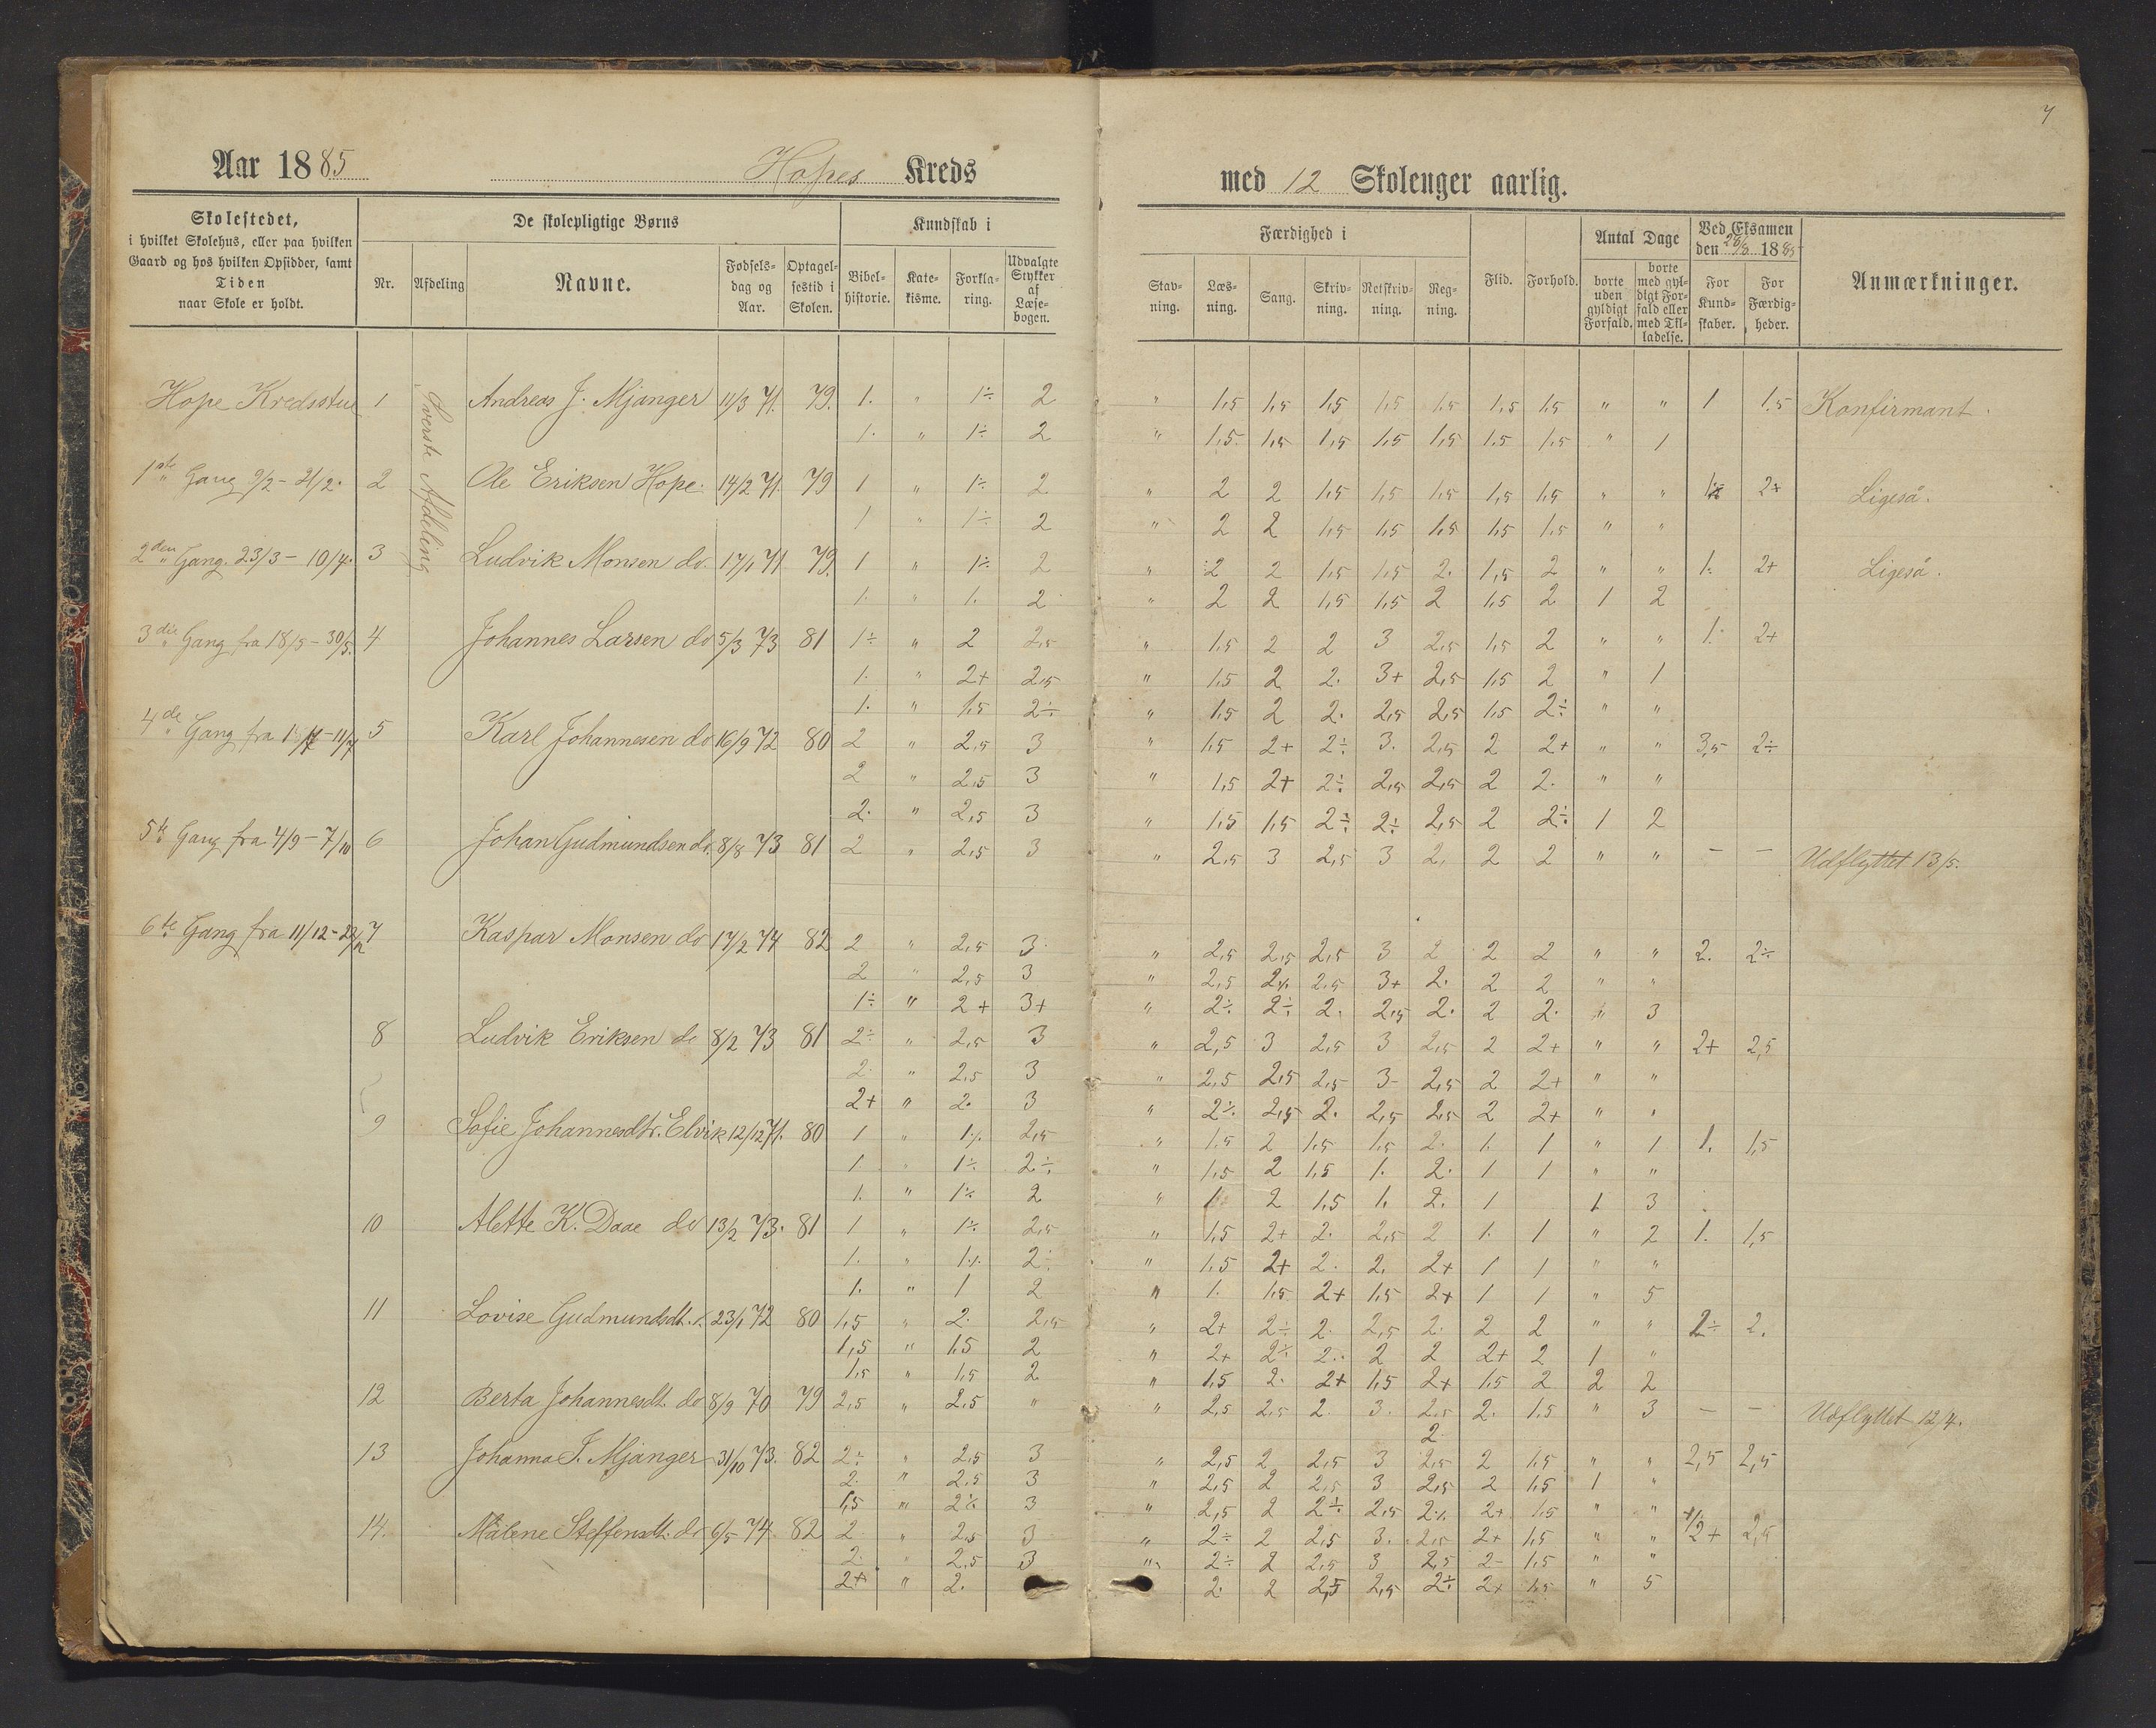 7
Aar 1885 Hopes Kreds med 12 Skoleuger aarlig.
Skolestedet, i hvilket Skolehus, eller paa hvilken Gaard og hos hvilken Opsidder, samt Tiden naar Skole er holdt.
De skolepligtige Børns
Nr. Afdeling Navne. Fødselsdag og Aar. Optagelsestid i Skolen.
Kundskab i
Bibelhistorie. Katekisme. Forklaring. Udvalgte Stykker af Læsebogen.
Færdighed i
Stavning. Læsning. Sang. Skrivning. Retskrivning. Regning.
Flid. Forhold.
Antal Dage
borte uden gyldigt Forfald. borte med gyldigt Forfald eller med Tilladelse.
Ved Eksamen den 26/8 1885
For Kundskaber. For Færdigheder.
Anmærkninger.
Øverste Afdeling
Hope Kredsstue 1 Andreas J. Mjanger 11/3 71. 79. 1. " 1÷ 2 " 1,5 1,5 1,5 1,5 1,5 1,5 1,5 " " 1 1.5 Konfirmant.
1. " 1÷ 2 " 1,5 1,5 1,5 1,5 1,5 1,5 1,5 " 1
1ste Gang 9/2 - 21/2. 2 Ole Eriksen Hope. 14/2 71. 79 1 " 1÷ 2 " 2 2 1,5 1,5 1,5 1,5 1,5 " " 2+ Ligeså.
1 " 1÷ 2 " 2 2 1,5 1,5 1,5 1,5 1,5 " "
2den Gang. 23/3 - 10/4. 3 Ludvik Monsen do. 17/1 71 79. 1 " 1÷ 2 " 2 2 1,5 1,5 2. 1,5 2 " " 1. 2+ Ligeså.
1. " 1. 2 " 2 2 1,5 1,5 2 1,5 2 1 2
3die Gang fra 18/5 - 30/5. 4 Johannes Larsen do 5/3 73 81 1÷ " 2 2,5 " 1,5 2 2 3 2,5 1,5 2 " " 1. 2+
1. " 2+ 2,5 " 1,5 2 2. 3+ 2,5 1,5 2 " 1
1. " 1,5 2÷ " 1,5 2 2. 2,5 2,5 1,5 2÷ " "
4de Gang fra 1/7 - 11/7 5 Karl Johannesen do 16/9 72 80 2 " 2,5 3 " 1,5 2+ 2÷ 3. 2,5 2 2+ " " 3,5 2÷
2 " 2,5 3 " 1,5 2+ 2÷ 2,5 2,5 2 2. " "
2. " 2,5 3 " 1,5 1,5 2÷ 2÷ 2,5 2 2÷ 1 2
5te Gang fra 4/9 - 7/10 6 Johan Gudmundsen do. 8/8 73 81 2 " 2,5 3 " 2,5 3 2,5 3 2. 2 2 " " — — Udflyttet 13/5.
6te Gang fra 11/12 - 22/12 7 Kaspar Monsen do 17/2 74 82 2 " 2,5 3 " 2,5 2,5 2,5 3 2 2 2 " " 2. 2÷
2 " 2,5 3 " 2,5 2÷ 2,5 3+ 2. 2 2 " "
1÷ " 2+ 3+ " 2÷ 2÷ 2. 2,5 2. 2 2. " 3
8 Ludvik Eriksen do 8/2 73 81 2÷ " 2,5 3 " 2,5 3 2,5 3 2,5 2 2+ " " 2+ 2,5
2. " 2,5 3 " 2,5 2,5 2,5 3- 2,5 2 2+ " "
2+ " 2. 3 " 2÷ 2,5 2. 2,5 2,5 2 2+ " "
9 Sofie Johannesdtr. Elvik 12/12 71. 80 1 " 1÷ 2,5 " 1.5 2 1,5 1,5 2. 1. 1 " 1 1. 1,5
1. " 1÷ 2÷ " 1,5 2 1,5 1. 2. 1 1 " "
1. " 1÷ 2 " 1 2 1,5 1. 2. 1 1 3
10 Alette K. Daae do 13/2 73. 81 1 " 1÷ 2,5 " 1,5 2+ 2. 2,5 2 1. 1 " 2 1. 1,5
1. " 1÷ 2÷ " 1,5 2+ 2. 2. 2+ 1 1 " "
1. " 1 2 " 1. 1,5 2+ 1,5 2+ 1 1 " 5
11 Lovise Gudmundsdt. 23/1 72 80 1,5 " 2. 2,5 " 2+ 2÷ 2. 2,5 2. 2 2 " " 2÷ 2.
1,5 " 1,5 2 " 2+ 2÷ 2. 2 2 2+ 2 1 "
1,5 " 1,5 2 " 1,5 2. 2+ 1,5 2+ 1,5 2 2 2
12 Berta Johannesdt. do 8/9 70 79 2,5 " 2.5 " " 2,5 2,5 2 3. 2,5 2. 1.5 " 3 — — Udflyttet 12/4.
2
13 Johanna J. Mjanger 31/10 73. 82 2÷ " 2,5 3 " 2,5 2 2,5 3 2,5 2 1,5 " " 2,5 2,5
2. " 2,5 3 " 2,5 2 2,5 3 2,5 2 1,5 1 "
1,5 " 2÷ 3 " 2,5 2 2÷ 2,5 2÷ 2+ 1,5 " "
14. Målene Steffensdt. do 6/5 74 82 2 " 2,5 3 " 2÷ 2 2,5 3. 2,5 2+ 1,5 " " 2+ 2,5
2. " 2,5 3 " 2÷ 2 2,5 3 2,5 2- 1,5 " "
2+ " 2. 2. 2 2,5 2,5 2÷ 2+ 1,5 " 5